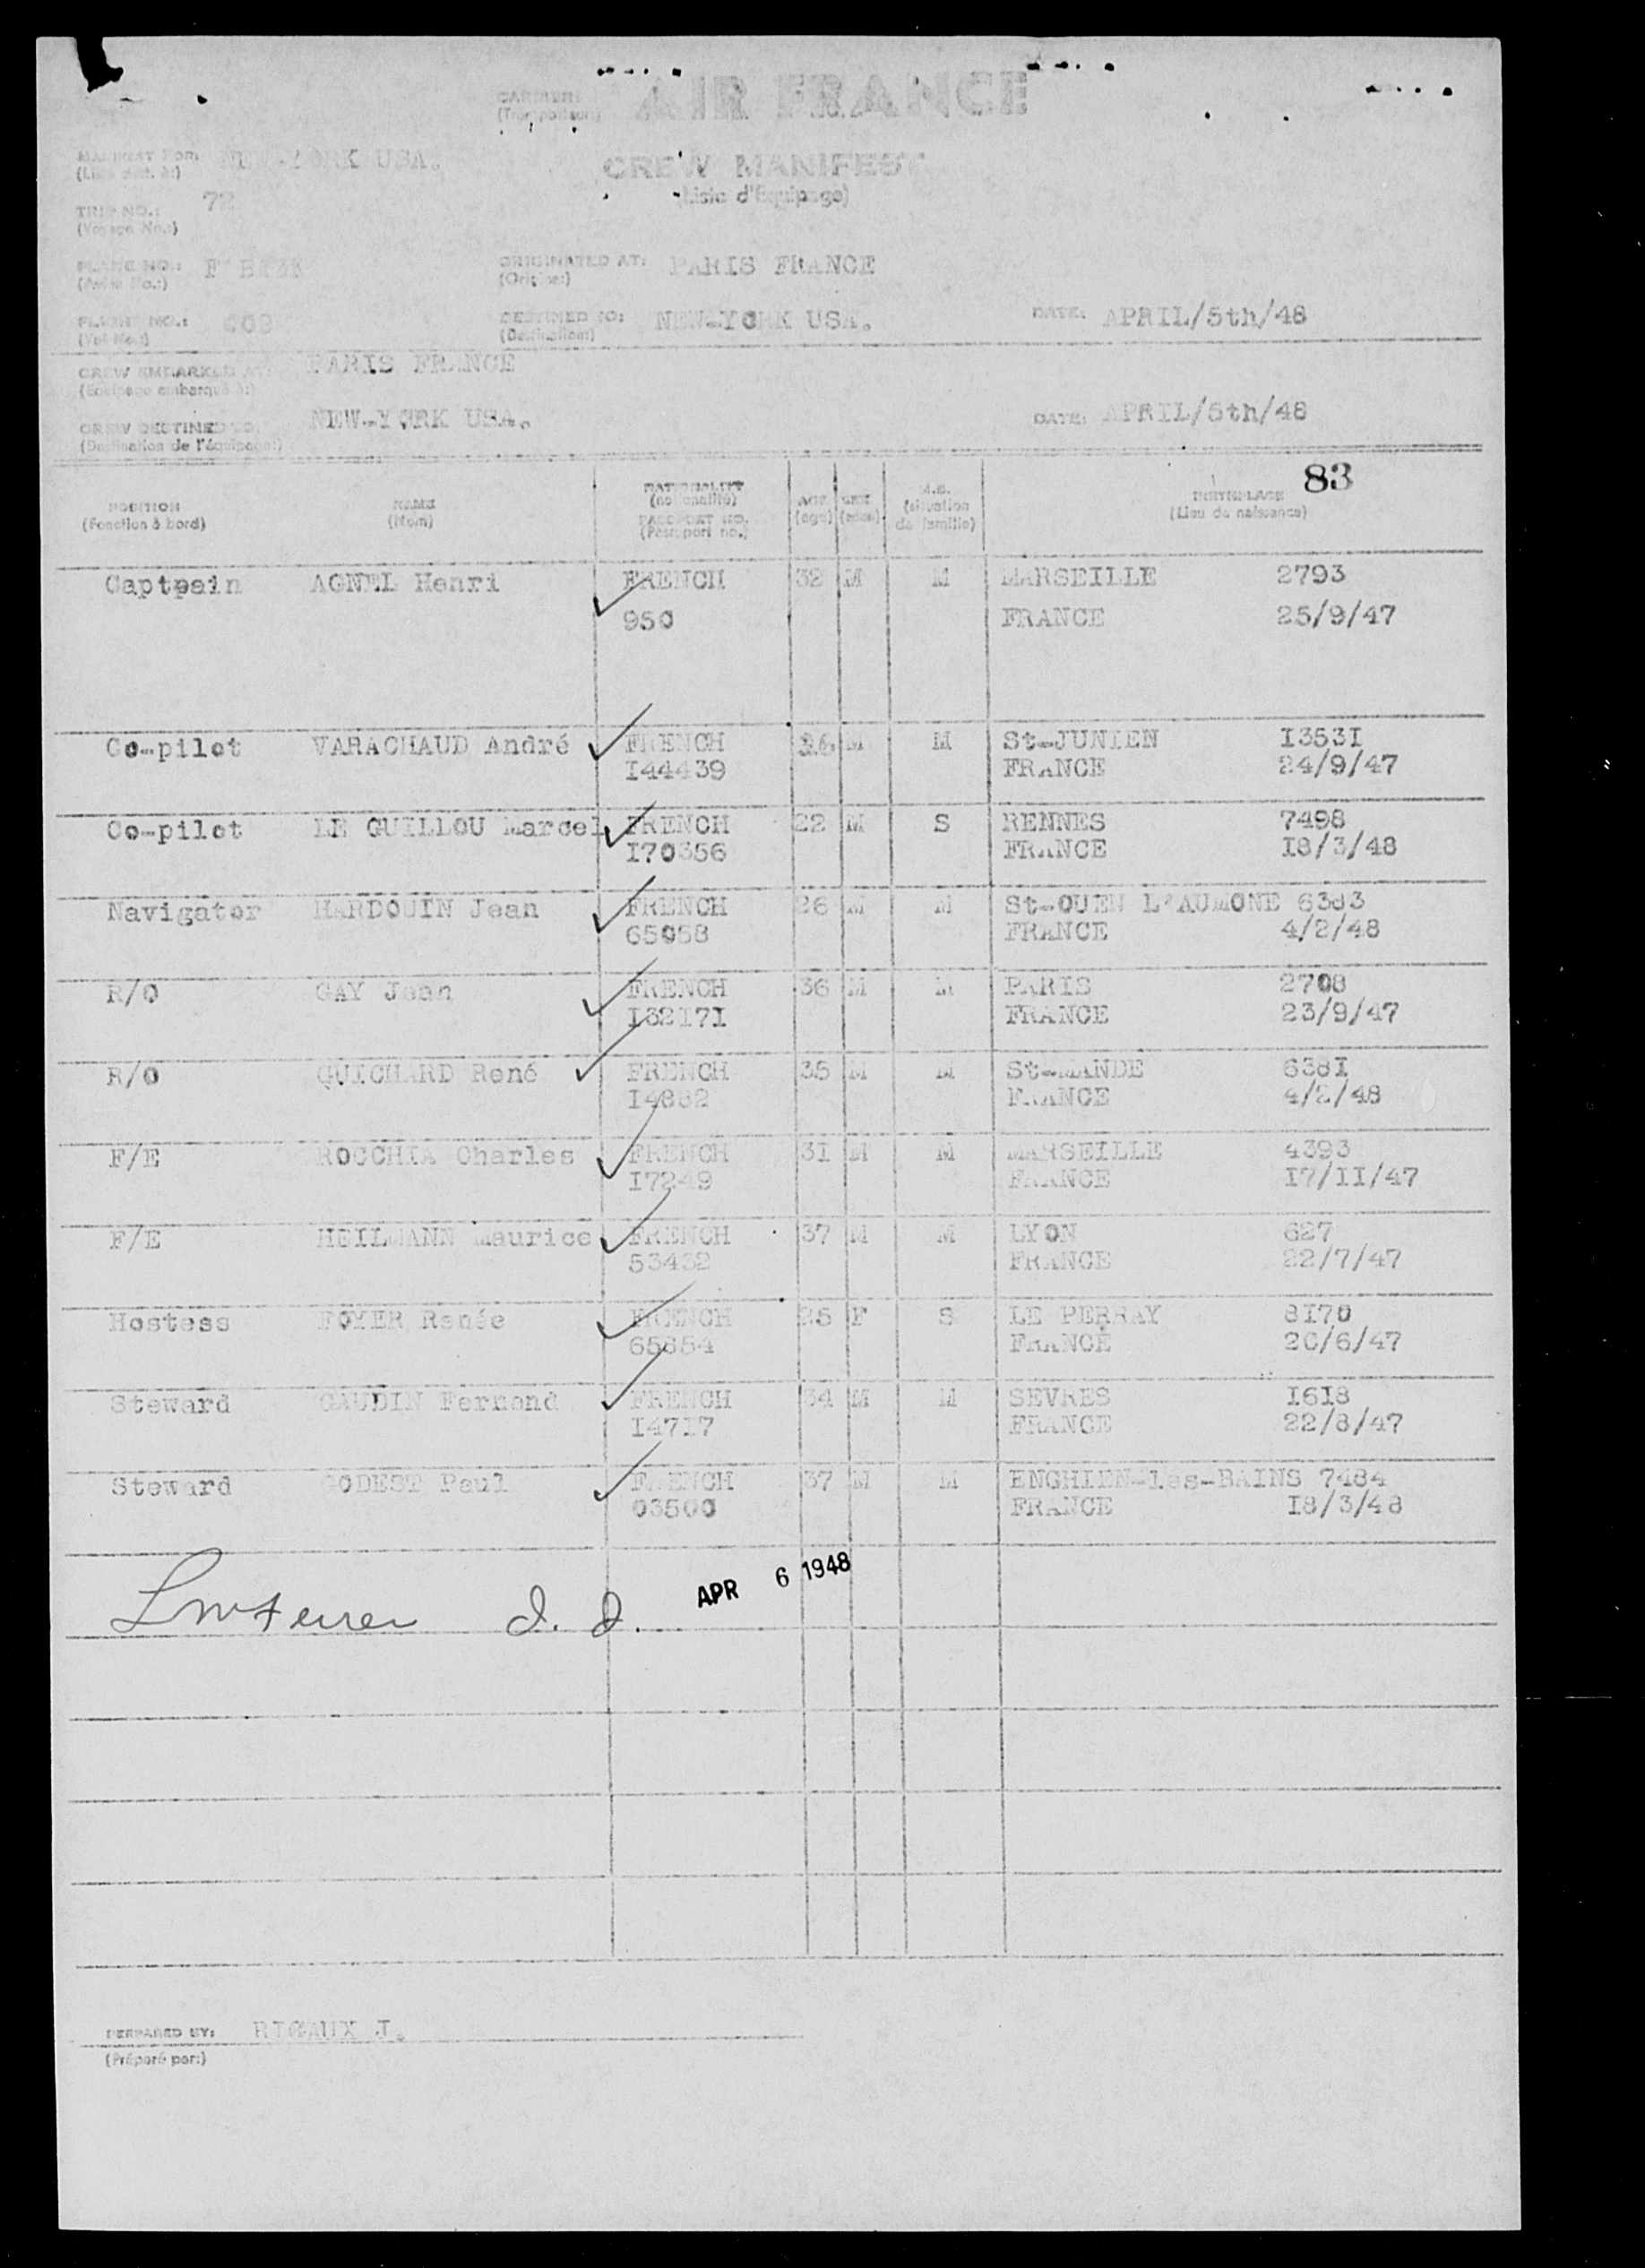 CARRIER: AIR FRANCE
(Transporteur)
MANIFEST FOR: NEW-YORK USA.
CREW MANIFEST
(Liste d'Equipage)
TRIP NO.: 72
(Voyage No.:)
PLANE NO.:
ORIGINATED AT: PARIS FRANCE
(Origine:)
FLIGHT NO.:
(Vol No.:)
DESTINED TO: NEW-YORK USA.
(Destination:)
DATE: APRIL/5th/48
CREW EMBARKED AT: PARIS FRANCE
(Equipage embarqué à:)
CREW DESTINED TO: NEW-YORK USA.
(Destination de l'équipage:)
DATE: APRIL/5th/48
83
POSITION NAME NATIONALITY AGE SEX BIRTHPLACE
(Fonction à bord) (Nom) (nationalité) (age) (sexe) (situation de famille) (Lieu de naissance)
PASSPORT NO.
(Passeport no.)
Captpain AGNEL Henri FRENCH 32 M M MARSEILLE 2793
950 FRANCE 25/9/47
Co-pilot VARACHAUD André FRENCH M M St-JUNIEN I353I
I44439 FRANCE 24/9/47
Co-pilot LE GUILLOU Marcel FRENCH 22 M S RENNES 7498
I70356 FRANCE I8/3/48
Navigator HARDOUIN Jean FRENCH 26 M M St-OUEN L'AUMONE 6383
65058 FRANCE 4/2/48
R/O GAY Jean FRENCH 36 M M PARIS 2708
I32I7I FRANCE 23/9/47
R/O GUICHARD René FRENCH 35 M M St-MANDE 638I
I4882 FRANCE 4/2/48
F/E ROCCHIA Charles FRENCH 3I M M MARSEILLE 4393
I7249 FRANCE I7/II/47
F/E HEILMANN Maurice FRENCH 37 M M LYON 627
53432 FRANCE 22/7/47
Hostess FOYER Renée FRENCH 25 F S LE PERRAY 8I70
65654 FRANCE 20/6/47
Steward GAUDIN Fernand FRENCH 34 M M SEVRES I6I8
I47I7 FRANCE 22/8/47
Steward GODEST Paul FRENCH 37 M M ENGHIEN-Les-BAINS 7484
03500 FRANCE I8/3/48
APR 6 1948
PREPARED BY: RIGAUX J.
(Préparé par:)